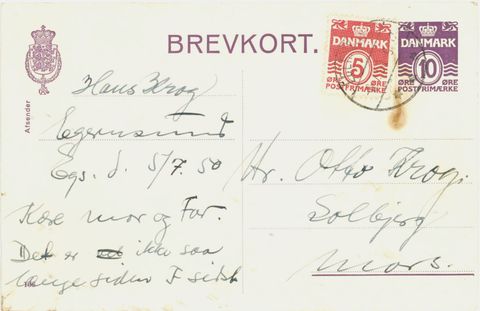 BREVKORT.
DANMARK
5
ØRE ØRE
POSTFRIMÆRKE
DANMARK
10
ØRE ØRE
POSTFRIMÆRKE
Afsender
Hans Krog
Egernsund
Egs. d. 5/7. 50
Kære mor og Far.
Det er ikke saa
længe siden I sidst
Hr. Otto Krog.
Solbjerg
Mors.